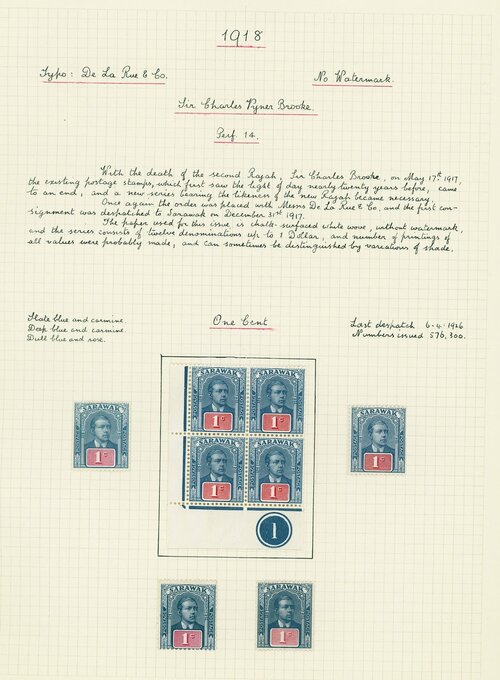 1918
Typo: De La Rue & Co.
No Watermark.
Sir Charles Vyner Brooke.
Perf 14.
With the death of the second Rajah, Sir Charles Brooke, on May 17th 1917,
the existing postage stamps, which first saw the light of day nearly twenty years before, came
to an end, and a new series bearing the likeness of the new Rajah became necessary.
Once again the order was placed with Messrs De La Rue & Co, and the first con-
signment was despatched to Sarawak on December 31st 1917.
The paper used for this issue is chalk-surfaced white wove, without watermark,
and the series consists of twelve denominations up to 1 Dollar, and number of printings of
all values were probably made, and can sometimes be distinguished by variations of shade.
Slate blue and carmine.
Deep blue and carmine.
Dull blue and rose.
One Cent
Last despatch 6.4.1926
Numbers issued 576,300.
SARAWAK
POSTAGE
1c
SARAWAK
POSTAGE
1c
SARAWAK
1c
SARAWAK
1c
SARAWAK
POSTAGE
1c
SARAWAK
POSTAGE
1c
1
SARAWAK
1c
SARAWAK
1c